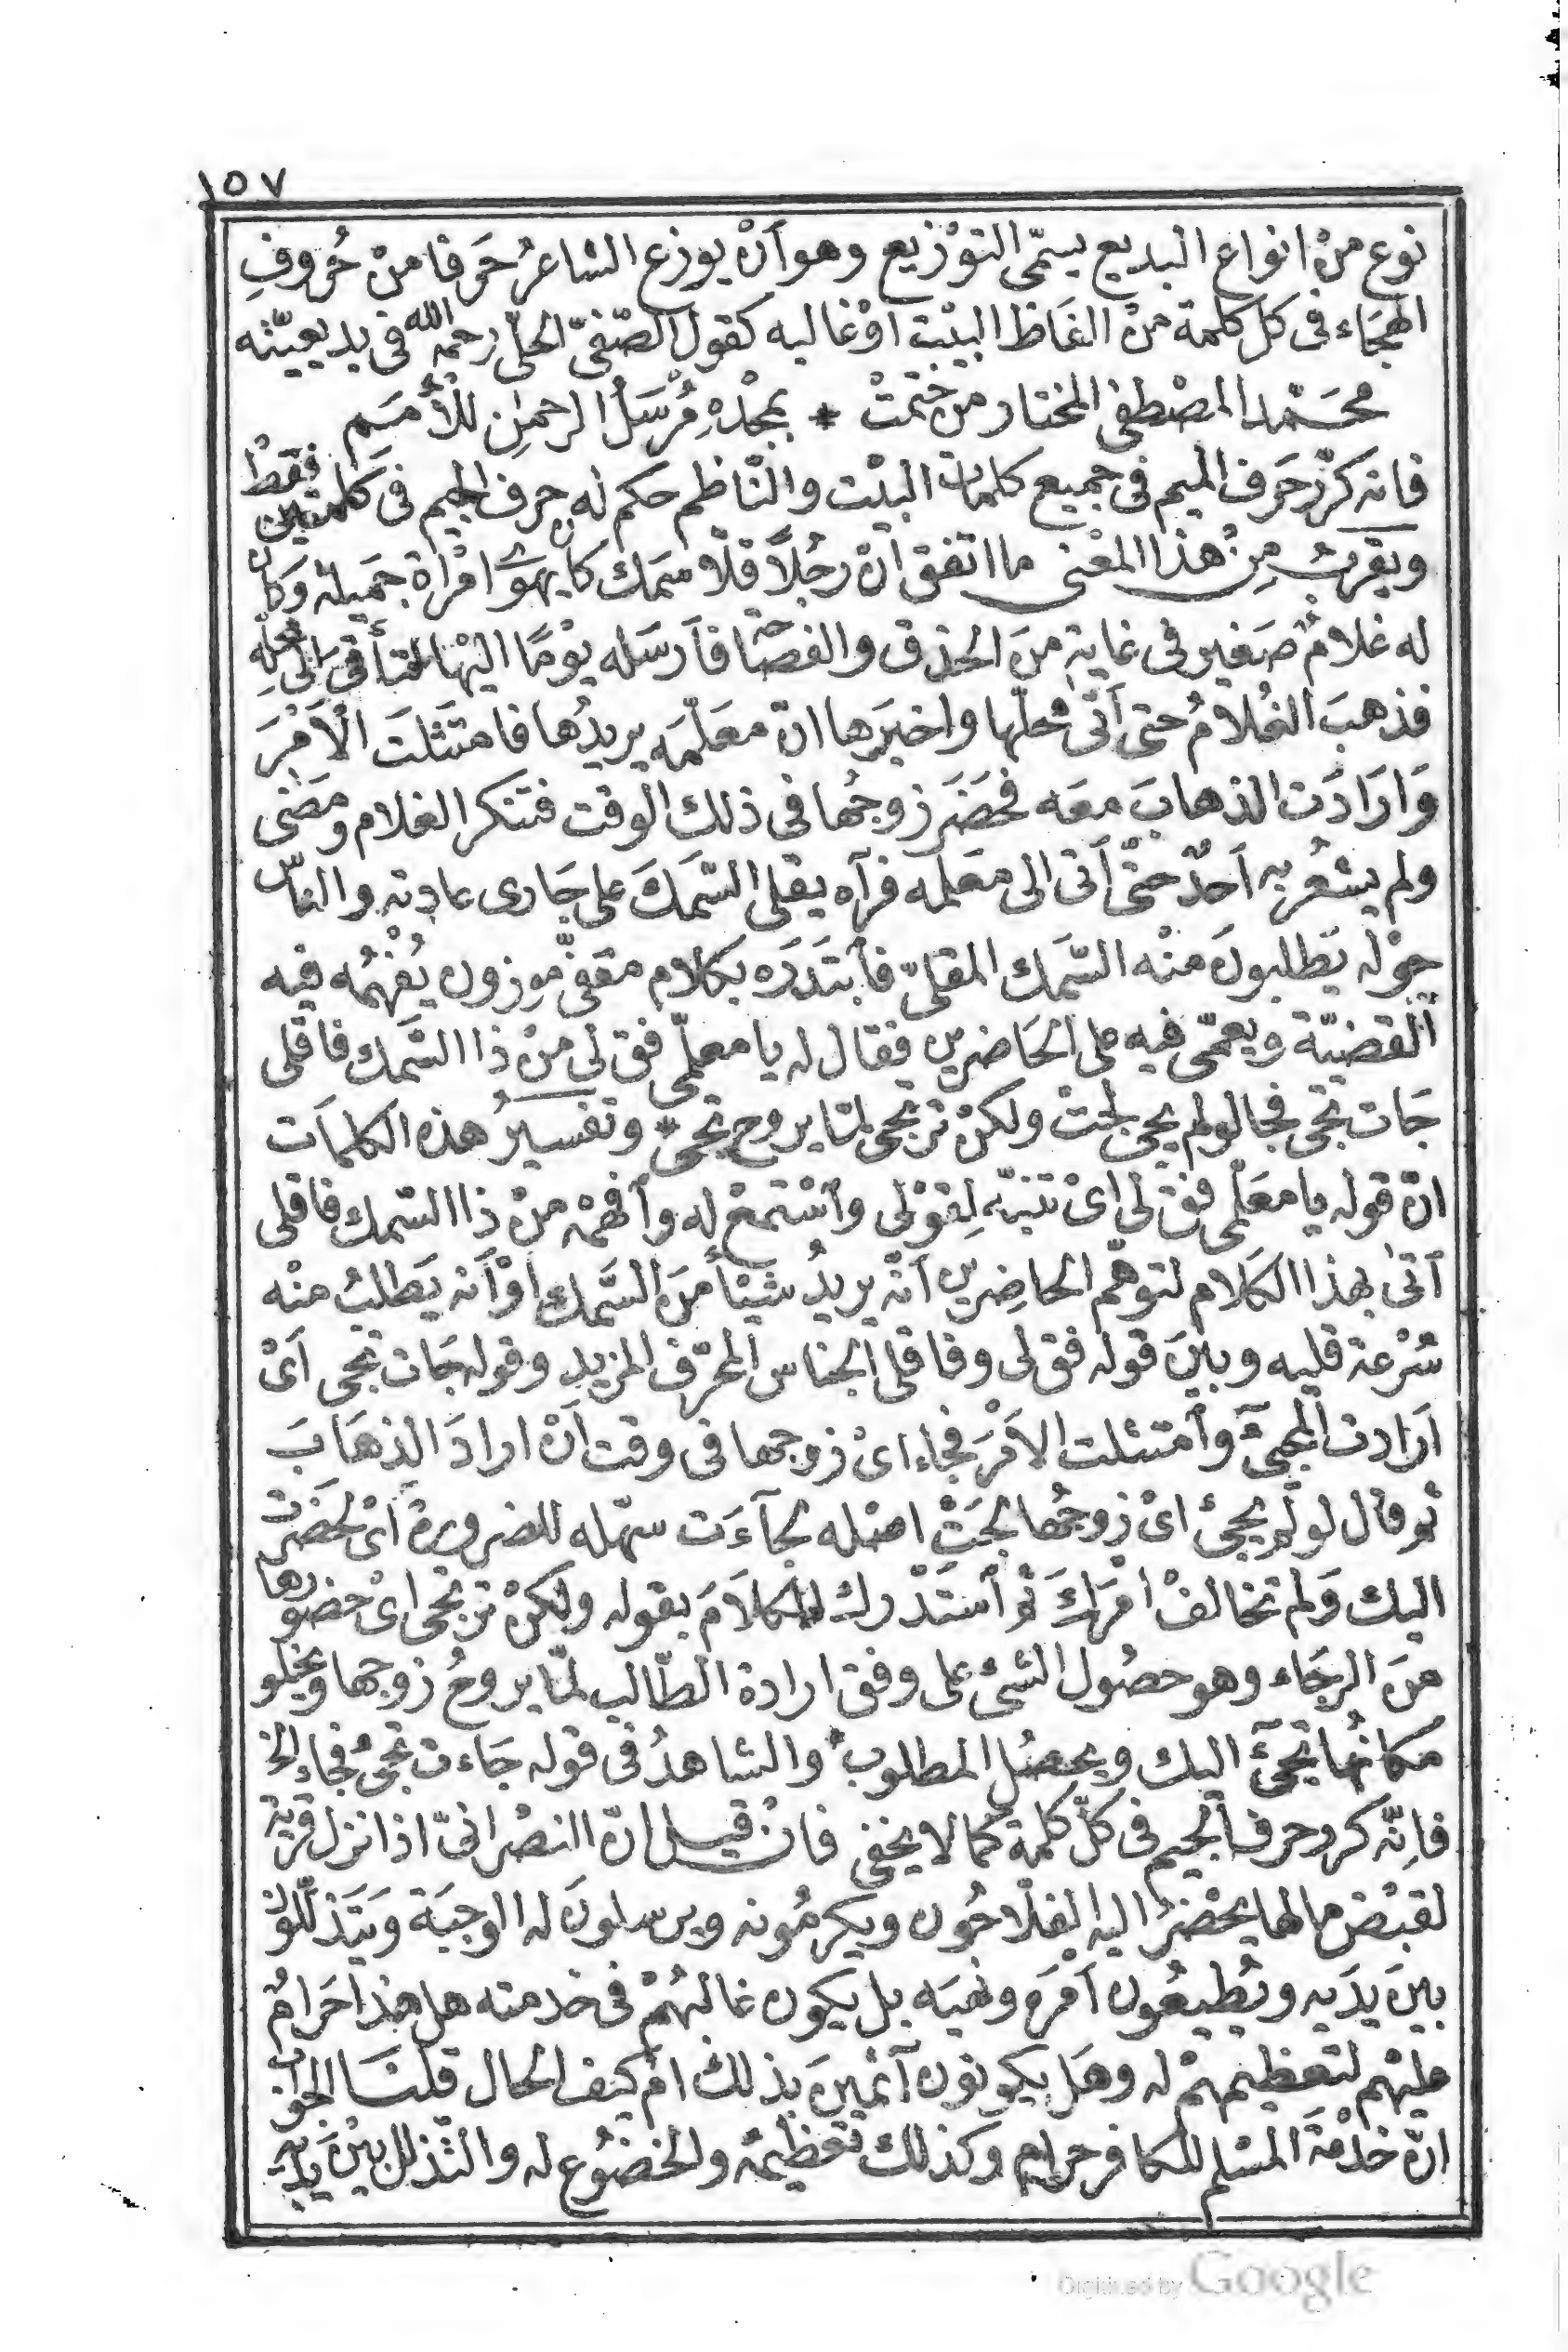 ١٥٧
نوع من انواع البديع يسمّى التوْزيع وهو أنْ يوزع الشاعرُ حَرفا منْ حُروفِ
الهجَاء فى كل كلمة منْ الفاظ البيْت اوْ غالبه كقول الصّفىّ الحلّى رحمه الله فى بديعيّته
محمّد المصْطفى المختار من ختمتْ * بمجْدهِ مُرْسَلُ الرحمٰنِ للأُمَمِ
فانه كرّر حَرف الميم فى جميع كلمات البيْت والنّاظم حكم له حرف الجيم فى كلمتين فقطْ
ويقربُ مِنْ هذا المعْنى ما اتفق انّ رجُلاً قلّا سمَك كان يهوىَ امْراة جَميلة وَكان
له غلامٌ صَغير فى غاية منَ الحذق والفصَاحة فأرسَله يوْمًا اليْها لتأتى الى محلّهِ
فذهبَ الغُلامُ حتى أتى محلّها واخبَرها انّ معَلّمَه يريدُها فامتثلَت الأمْرَ
وَارَادَت الذهابَ معَه فحَضَر زوجُها فى ذلك الوقت فتنكر الغلام ومضَى
ولم يشعُر به اَحدٌ حتّى أتى الى معَلمه فرآه يقلى السّمَكَ على جَارى عادته والناسُ
حوْله يَطلبونَ منْه السّمَك المقلىّ فأبتَدَرَه بكلام مقفىّ موزون يُفْهمُه فيه
القضيّة ويعمّى فيه على الحَاضرين فقال له يا معلّمى فق لى منْ ذا السَّمَك فاقلى
جَات تجى فجا لولم يجى لجتْ ولكنْ ترتجى لمّا يروح تجى * وتفسيرُ هذه الكلمَات
انّ قوله يا معَلمى فق لى اىْ تنبّه لِقوْلى وأسْتمعْ له وأفهمْه منْ ذا السّمك فاقلى
أتى بهذا الكلام لتوهّم الحاضِرين أنّه يريدُ شيْئاً منَ السَّمك اوْ أنه يَطلبُ منْه
سُرْعة قليه وبينَ قوله فق لى وفاقلى الجناس المحرّف المزيد وقوله جَات تجى أىْ
اَرَادت المجئَ وأمتثلت الأمْرَ فجاء اىْ زوجها فى وقت أنْ ارادَ الذهَابَ
ثم قال لو لم يجئ اىْ زوجُها لجَتِ اصْله لجآءَت سهّله للضرورة اىْ لحَضَرتْ
اليك وَلم تخالفْ امْرَكَ ثم أسْتدْرك الكلامَ بقوله ولكنْ ترتجى اىْ حضورها
منَ الرجَاء وهو حصُول الشئ على وفق ارادة الطّالب لمّا يروحُ زوجها ويخلو
مكانُها تجئَ اليك ويحصُل المطلوب والشاهدُ فى قوله جَاءت تجئُ فجاء الخ
فإنّه كرر حرف الجيم فى كلّ كلمة كما لا يخفى فانْ قيل انّ النصْرانىّ اذا نزل قريَة
لقبْض مالها يحْضرُ اليه الفلّاحُون ويكرمُونه ويرسلونَ له الوجبَة وَيَتذلّلونْ
بينَ يدَيه ويُطيعُون أمْرَه ونهيَه بل يكون غالبُهُمْ فى خدمته هل هذا حَرامٌ
عليْهم لتعْظيمهمْ له وهَل يكونون آثمينَ بذلك امْ كيف الحال قلنَا الجوابْ
انّ خدْمَة المسْلم للكافر حرام وكذلك تعْظيمُه والخضُوع له والتّذلل بيْن يدَيه
Digitized by Google